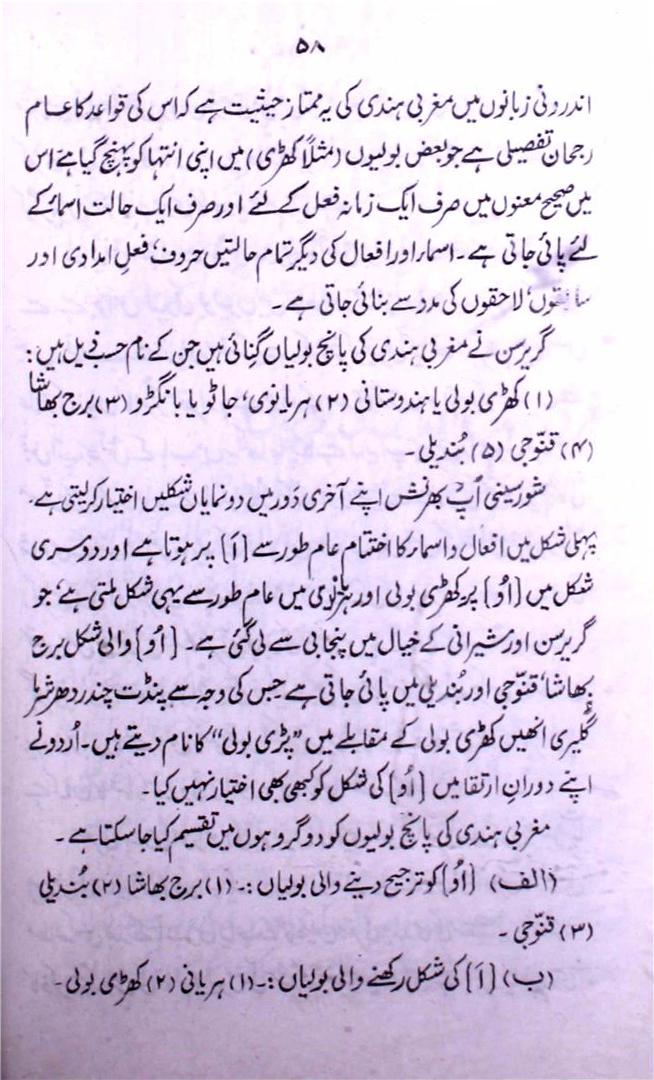 ۵۸
اندرونی زبانوں میں مغربی ہندی کی یہ ممتاز حیثیت ہے کہ اس کی قواعد کا عام
رجحان تفصیلی ہے جو بعض بولیوں (مثلاً کھڑی) میں اپنی انتہا کو پہنچ گیا ہے اس
میں صحیح معنوں میں صرف ایک زمانہ فعل کے لئے اور صرف ایک حالت اسمائ کے
لئے پائی جاتی ہے۔ اسمار اور افعال کی دیگر تمام حالتیں حروف، فعل امدادی اور
سابقوں، لاحقوں کی مدد سے بنائی جاتی ہے۔
گریرسن نے مغربی ہندی کی پانچ بولیاں گِنائی ہیں جن کے نام حسبِ ذیل ہیں:
(۱) کھڑی بولی یا ہندوستانی (۲) ہریانوی، جاٹو یا بانگڑو (۳) برج بھاشا
(۴) قنّوجی (۵) بُندیلی۔
شورسینی اَپ بھرنش اپنے آخری دَور میں دو نمایاں شکلیں اختیار کرلیتی ہے۔
پہلی شکل میں افعال و اسمار کا اختتام عام طور سے [اَ] پر ہوتا ہے اور دوسری
شکل میں [اُو] پر کھڑی بولی اور ہریانوی میں عام طور سے یہی شکل ملتی ہے، جو
گریرسن اور شیرانی کے خیال میں پنجابی سے لی گئی ہے۔ [اُو] والی شکل برج
بھاشا، قنّوجی اور بُندیلی میں پائی جاتی ہے جس کی وجہ سے پنڈت چندر دھر شرما
گلیری انھیں کھڑی بولی کے مقابلے میں ”پڑی بولی“ کا نام دیتے ہیں۔ اُردو نے
اپنے دورانِ ارتقا میں [اُو] کی شکل کو کبھی بھی اختیار نہیں کیا۔
مغربی ہندی کی پانچ بولیوں کو دو گروہوں میں تقسیم کیا جاسکتا ہے۔
(الف) [اُو] کو ترجیح دینے والی بولیاں :۔ (۱) برج بھاشا (۲) بُندیلی
(۳) قنّوجی ۔
(ب) [اَ] کی شکل رکھنے والی بولیاں :۔ (۱) ہریانی (۲) کھڑی بولی ۔